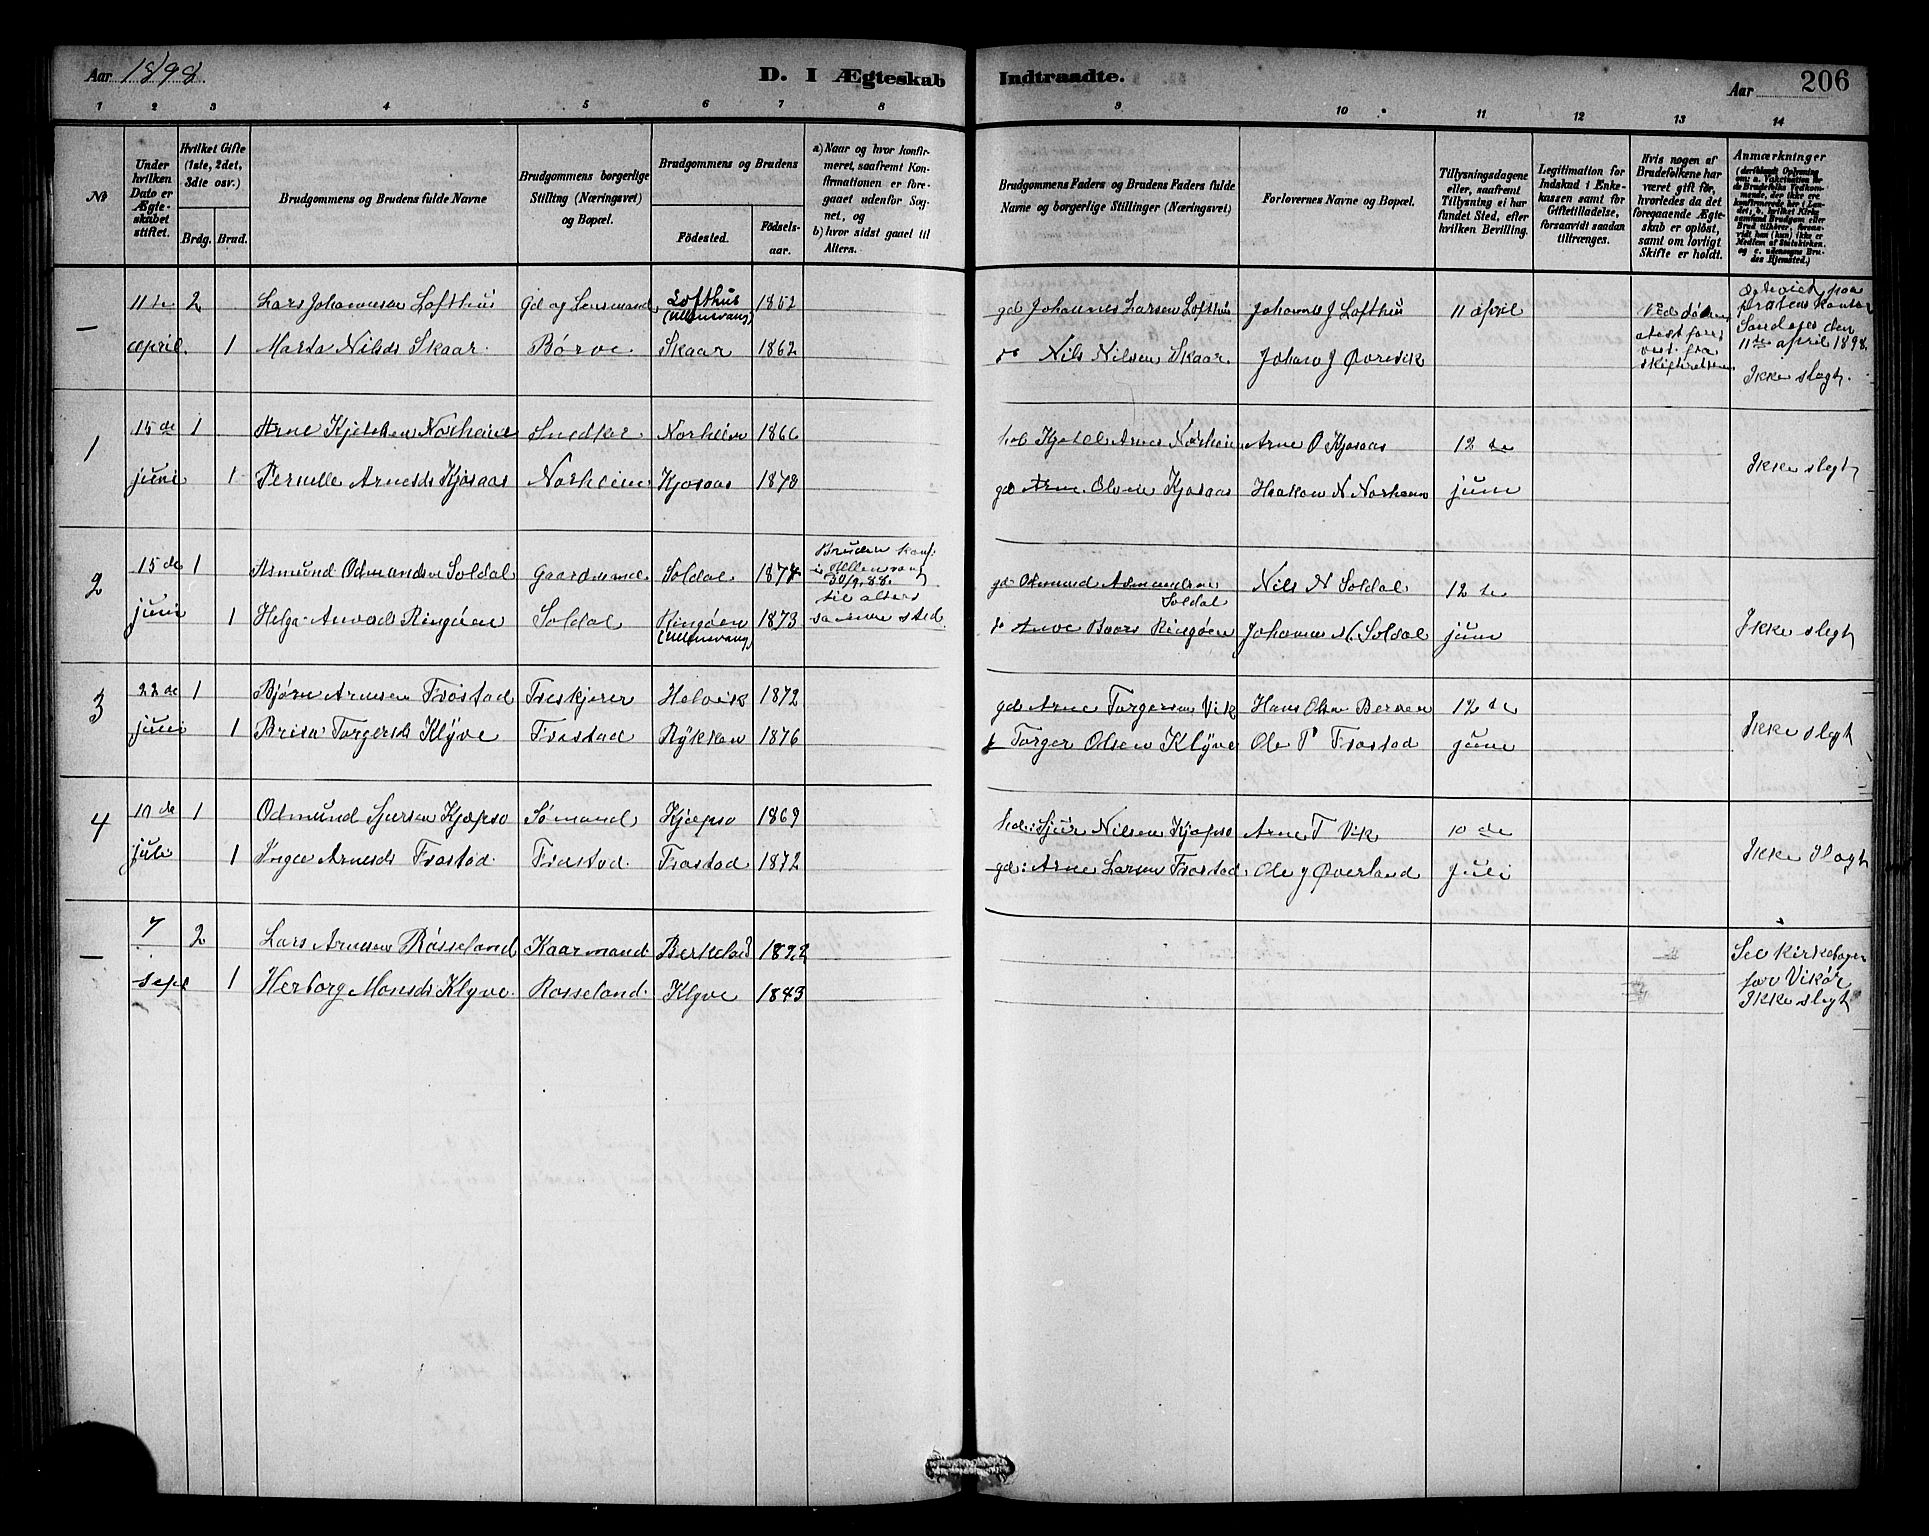 Aar 1898 D. I Ægteskab Indtraadte. Aar 206
1 2 3 4 5 6 7 8 9 10 11 12 13 14
№
Under hvilken Dato er Ægteskabet stiftet.
Hvilket Gifte (1ste, 2det, 3die osv.)
Brdg. Brud.
Brudgommens og Brudens fulde Navne
Brudgommens borgerlige Stilling (Næringsvei) og Bopæl.
Brudgommens og Brudens
Fødested. Fødselsaar.
a) Naar og hvor konfirmeret, saafremt Konfirmationen er foregaaet udenfor Sognet, og
b) hvor sidst gaaet til Alters.
Brudgommens Faders og Brudens Faders fulde Navne og borgerlige Stillinger (Næringsvei)
Forlovernes Navne og Bopæl.
Tillysningsdagene eller, saafremt Tillysning ei har fundet Sted, efter hvilken Bevilling.
Legitimation for Indskud i Enkekassen samt for Giftetilladelse, forsaavidt saadan tiltrænges.
Hvis nogen af Brudefolkene har været gift før, hvorledes da det foregaaende Ægteskab er opløst, samt om lovligt Skifte er holdt.
Anmærkninger
— 11te 2 Lars Johannesen Lofthus Gd og Lensmand Lofthus (Ullensvang) 1852 gd Johannes Larsen Lofthus Johannes J Lofthus 11 april
april 1 Marta Nilsd Skaar Børve Skaar 1862 do Nils Nilsen Skaar Johans J Øvrevik
11te april 1898
Ikke slegt.
1 15de 1 Arne Kjetelsen Norheim Snedker Norheim 1866 Kjetel Arnes Norheim Arne O Kjosaas 12te
juni 1 Pernille Arnesd Kjosaas Norheim Kjosaas 1878 gd Arne Olsen Kjosaas Haakon N Norheim juni Ikke slegt
2 15de 1 Asmund Odmundsen Soldal Gaardmand Soldal 1874 Bruden konf. i Ullensvang 30/9 88. til alters samme sted gd. Odmund Asmundsen Soldal Nils N Soldal 12te
juni 1 Helga Amvad Ringøen Soldal Ringøen (Ullensvang) 1873 Ringøen Johannes Soldal juni Ikke slegt
3 22de 1 Bjørn Arnesen Frostad Træskjærer Helvik 1872 gd. Arne Torgersen Vik Hans Olsen Berven 12te
juni 1 Brita Torgersd Klyve Frostad Rykken 1876 Torger Olsen Klyve Ole T Frostad juni Ikke slegt
4 10de 1 Odmund Sjursen Kjepso Sømand Kjepso 1869 hd: Sjur Nilsen Kjepso Arne T Vik 10de
juli 1 Inger Arnesd Frostad. Frostad. Frostad 1872 gd: Arne Larsen Frostad Ole J Øverland juli Ikke slegt
— 7 2 Lars Arnesen Røsseland Kaarmand 1822 See Kirkebogen
sept 1 Herborg Monsd Klyve. Rosseland. Klyve 1843 for Vikør
Ikke slegt